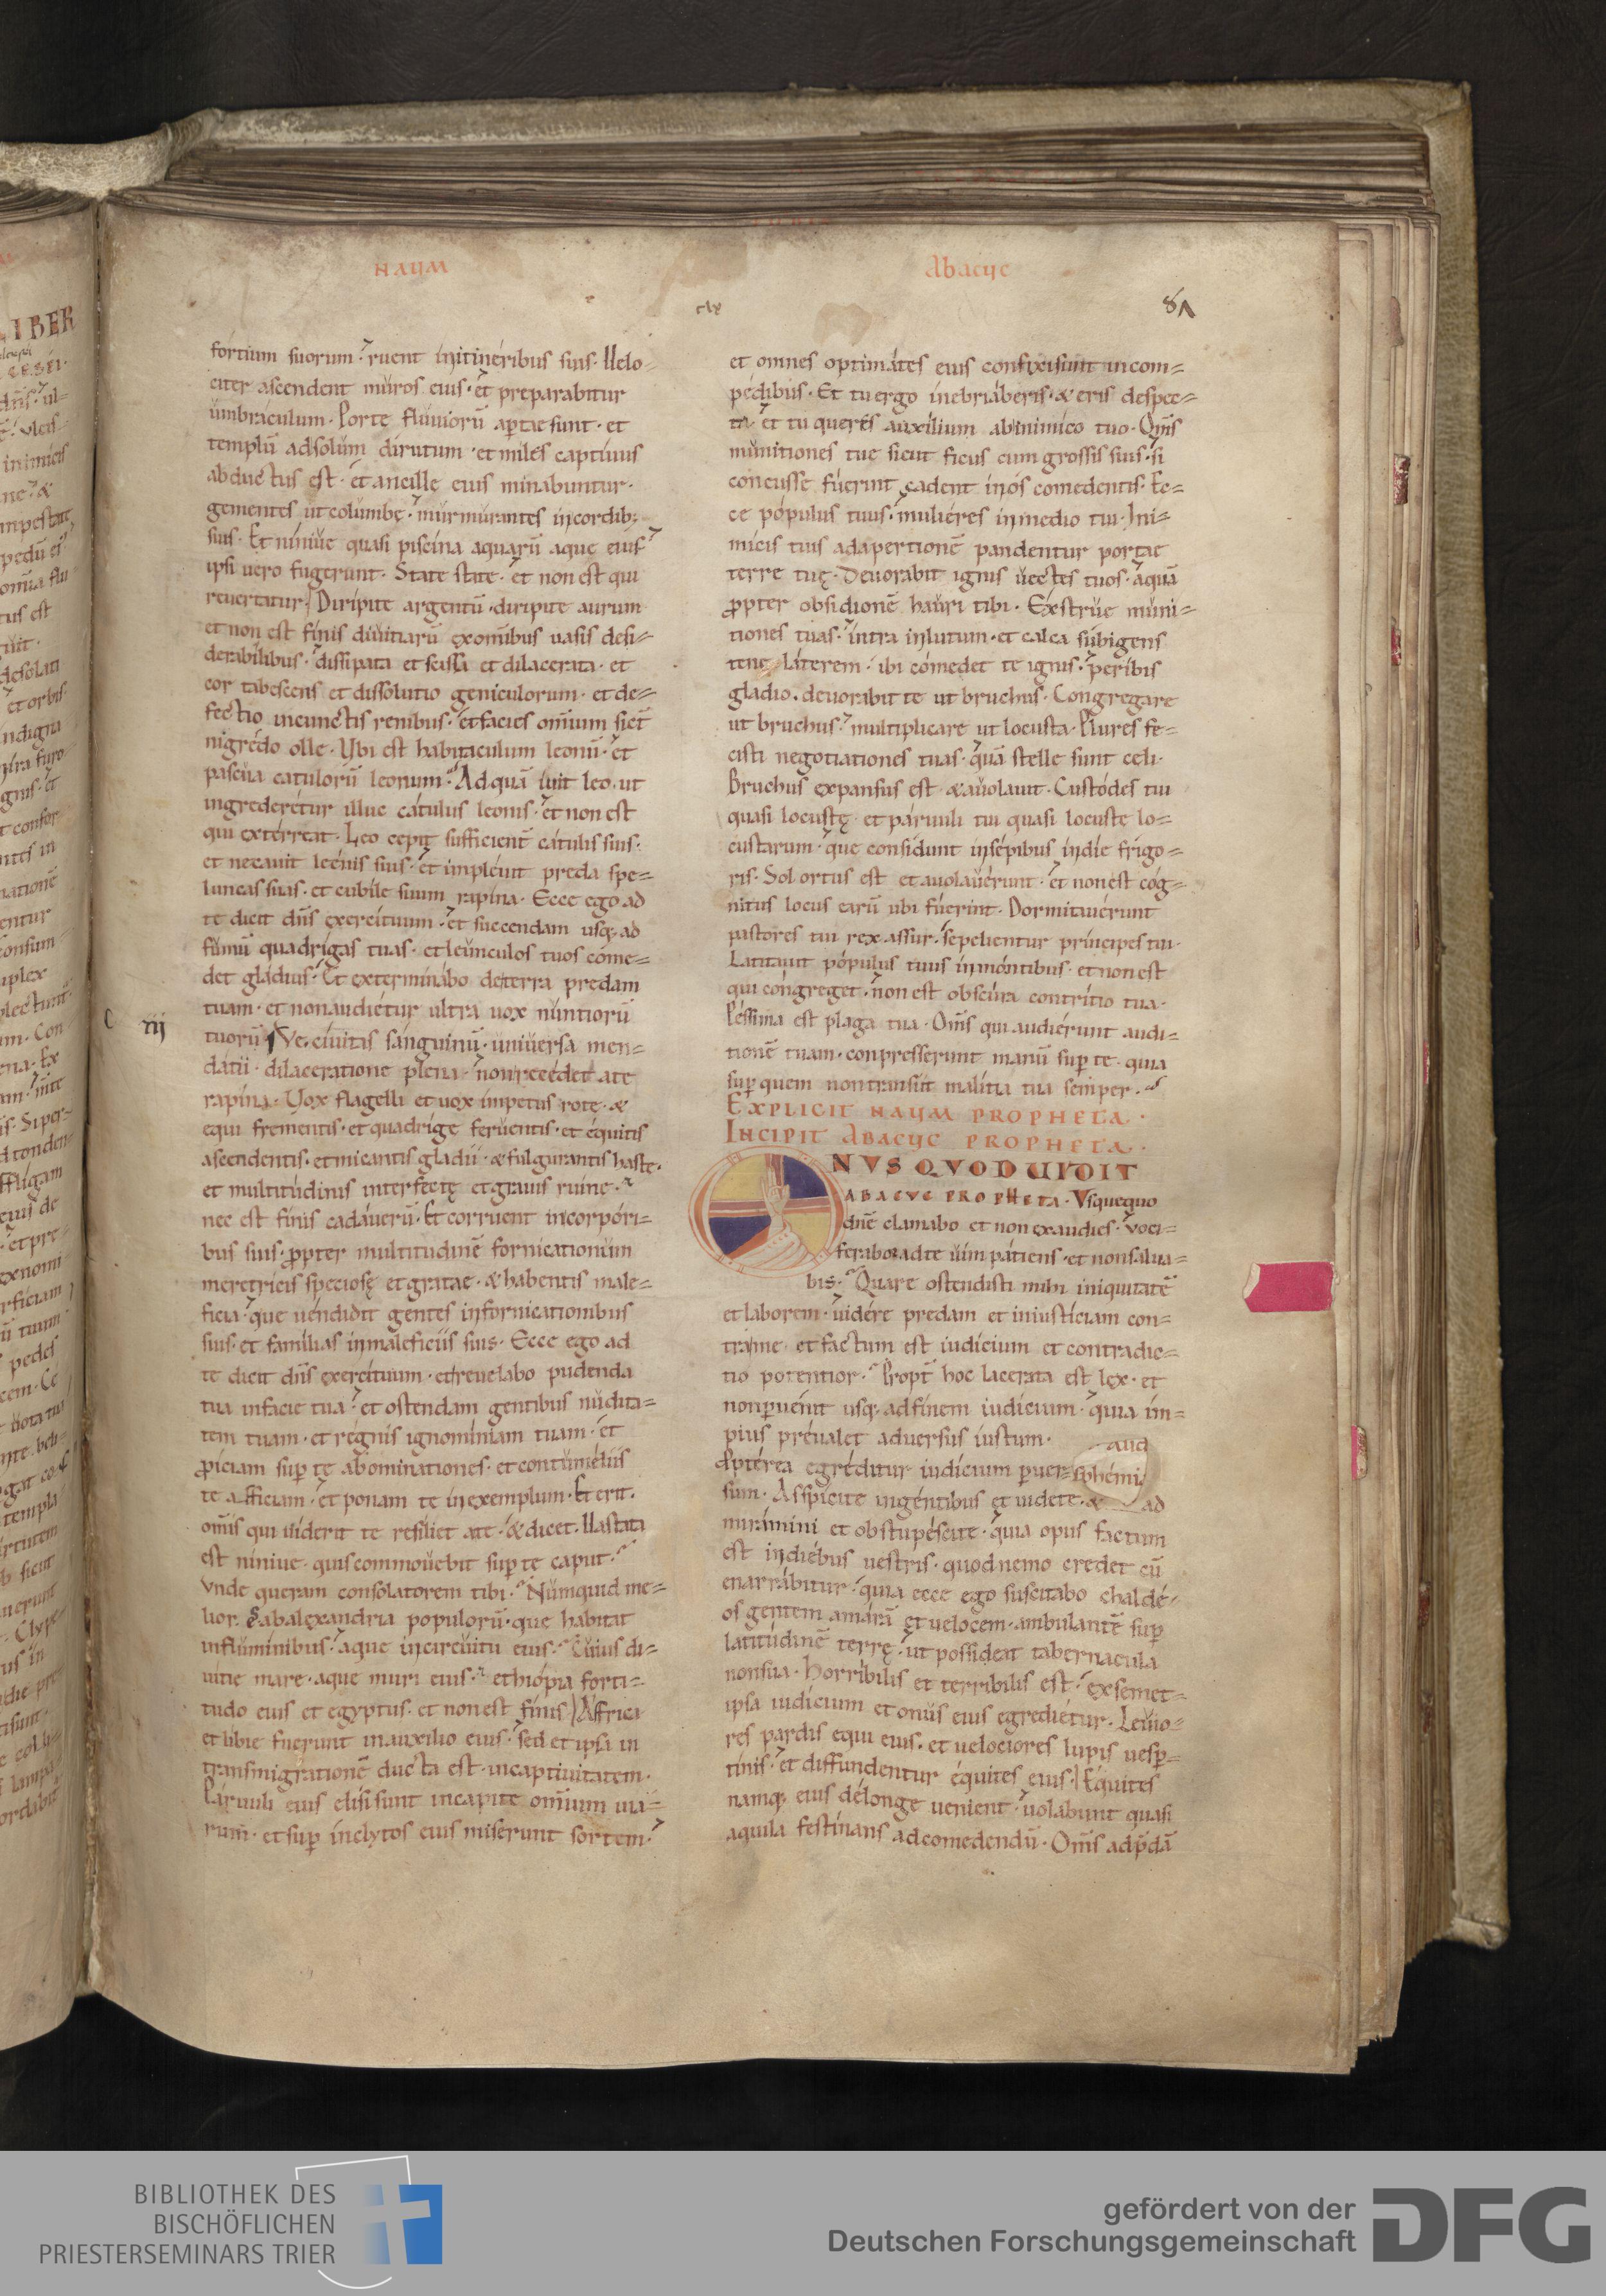 NAUM
Abacuc
fortium suorum. ruent initineribus suis. Velo-
citer ascendent muros eius. et preparabitur
umbraculum. Porte fluuiorū aptae sunt. et
templū adsolum dirutum. et miles captiuus
abductus est. et ancillę eius minabuntur.
gementes ut columbę. murmurantes incordib;
suis. Et niniue quasi piscina aquarū aque eius.
ipsi uero fugerunt. State state. et non est qui
reuertatur. Diripite argentū. diripite aurum
et non est finis diuitiarū exomībus uasis desi=
derabilibus. dissipata et scissa et dilacerata. et
cor tabescens et dissolutio geniculorum. et de=
fectio incunctis renibus. et facies omīum sicī
nigredo olle. Ubi est habitaculum leonū. et
pascua catulorū leonum. Ad quā iuit leo. ut
ingrederetur illuc catulus leonis. et non est
qui exterreat. Leo cepit sufficienī catulis suis.
et necauit leenis suis. et impleuit preda spe=
luncas suas. et cubile suum rapina. Ecce ego ad
te dicit dn̄s exercituum. et succendam usq; ad
fumū quadrigas tuas. et leunculos tuos come=
det gladius. Et exterminabo deterra predam
tuam. et nonaudietur ultra uox nuntiorū
C iij
tuorū Ve. ciuitas sanguinū. uniuersa men=
dacii. dilaceratione plena. non recedet ate
rapina. Vox flagelli et uox impetus rotę. &
equi frementis. et quadrige feruentis. et equitis
ascendentis. et micantis gladii. & fulgurantis hastę.
et multitudinis interfectę et grauis ruine.
nec est finis cadauerū. Et corruent incorpori=
bus suis. ꝓpter multitudinē fornicationum
meretricis speciosę et gratae. & habentis male=
ficia. que uendidit gentes infornicationibus
suis. et familias inmaleficiis suis. Ecce ego ad
te dicit dn̄s exercituum. et reuelabo pudenda
tua infacie tua. et ostendam gentibus nudita=
tem tuam. et regnis ignominiam tuam. et
ꝓiciam suꝑ te abominationes. et contumeliis
te afficiam. et ponam te inexemplum. Et erit.
om̄is qui uiderit te resiliet ate. & dicet. Uastata
est niniue. quis commouebit suꝑ te caput.
Vnde queram consolatorem tibi. Numquid me=
lior. es abalexandria populorū. que habitat
influminibus. aque incircuitu eius. Cuius di=
uitie mare. aque muri eius. ethiopia forti=
tudo eius et egyptus. et non est finis. Affrica
et libie fuerunt inauxilio eius. sed et ipsa in
transmigrationē ducta est. incaptiuitatem.
Paruuli eius elisi sunt incapite omīum uia=
rum. et suꝑ inclytos eius miserunt sortem.
et omnes optimates eius confixi sunt incom=
pedibus. Et tu ergo inebriaberis. & eris despec=
ta. et tu queres auxilium abinimico tuo. Om̄s
munitiones tue sicut ficus cum grossis suis. si
concusse fuerint cadent inos comedentis. Ec=
ce populus tuus. mulieres inmedio tui. Ini=
micis tuis adapertionē pandentur portae
terre tuę. Deuorabit ignis uectes tuos. aquā
ꝓpter obsidionē hauri tibi. Exstrue muni=
tiones tuas. intra inlutum. et calca subigens
tene laterem. ibi comedet te ignis. peribis
gladio. deuorabit te ut bruchus. Congregare
ut bruchus. multiplicare ut locusta. Plures fe=
cisti negotiationes tuas. quā stelle sunt celi.
Bruchus expansus est & auolauit. Custodes tui
quasi locustę. et paruuli tui quasi locuste lo=
custarum. que considunt insepibus indie frigo=
ris. Sol ortus est et auolauerunt. et non est cog=
nitus locus earū ubi fuerint. Dormitauerunt
pastores tui rex assur. sepelientur principes tui.
Latitauit populus tuus inmontibus. et non est
qui congreget. non est obscura contritio tua.
Pessima est plaga tua. Om̄s qui audierunt audi=
tionē tuam. conpresserunt manū suꝑ te. quia
suꝑ quem non transiit malitia tua semper.
EXPLICIT NAUM PROPHETA.
INCIPIT ABACUC PROPHETA.
ONUS QUOD UIDIT
ABACUC PROPHETA. Vsquequo
dn̄e clamabo et non exaudies. voci=
ferabor adte uim patiens. et nonsalua=
bis. Quare ostendisti mihi iniquitatē
et laborem. uidere predam et iniusticiam con=
tra me. et factum est iudicium et contradic=
tio potentior. Propt̄ hoc lacerata est lex. et
non ꝑuenit usq; adfinem iudicium. quia im=
pius preualet aduersus iustum.
ꝓpterea egreditur iudicium ꝑuer=
sum. Aspicite ingentibus et uidete. &
miramini et obstupescite. quia opus factum
est indiebus uestris. quod nemo credet cū
enarrabitur. quia ecce ego suscitabo chalde=
os gentem amarā et uelocem. ambulantē suꝑ
latitudinē terrę. ut possideat tabernacula
nonsua. Horribilis et terribilis est. exsemet=
ipsa iudicium et onus eius egredietur. Leuio=
res pardis equi eius. et uelociores lupis uesꝑ=
tinis. et diffundentur equites eius. Equites
namq; eius delonge uenient. uolabunt quasi
aquila festinans ad comedendū. Om̄s adp̄dā
BIBLIOTHEK DES
BISCHÖFLICHEN
PRIESTERSEMINARS TRIER
gefördert von der
Deutschen Forschungsgemeinschaft
DFG